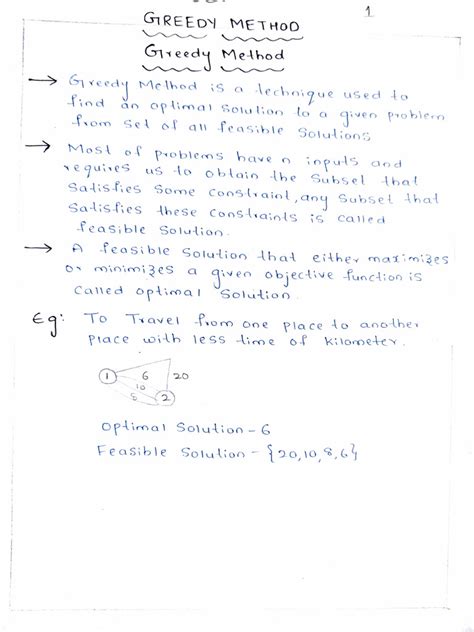 1
GREEDY METHOD
Greedy Method
→ Greedy Method is a technique used to
find an optimal solution to a given problem
from set of all feasible Solutions
→ Most of problems have n inputs and
requires us to obtain the Subset that
Satisfies Some Constraint, any Subset that
Satisfies these Constraints is called
feasible Solution.
→ A feasible Solution that either maximizes
or minimizes a given objective function is
Called optimal Solution.
Eg: To Travel from one place to another
place with less time of kilometer.
1 6 20
10
8 2
Optimal Solution - 6
Feasible Solution - {20,10,8,6}